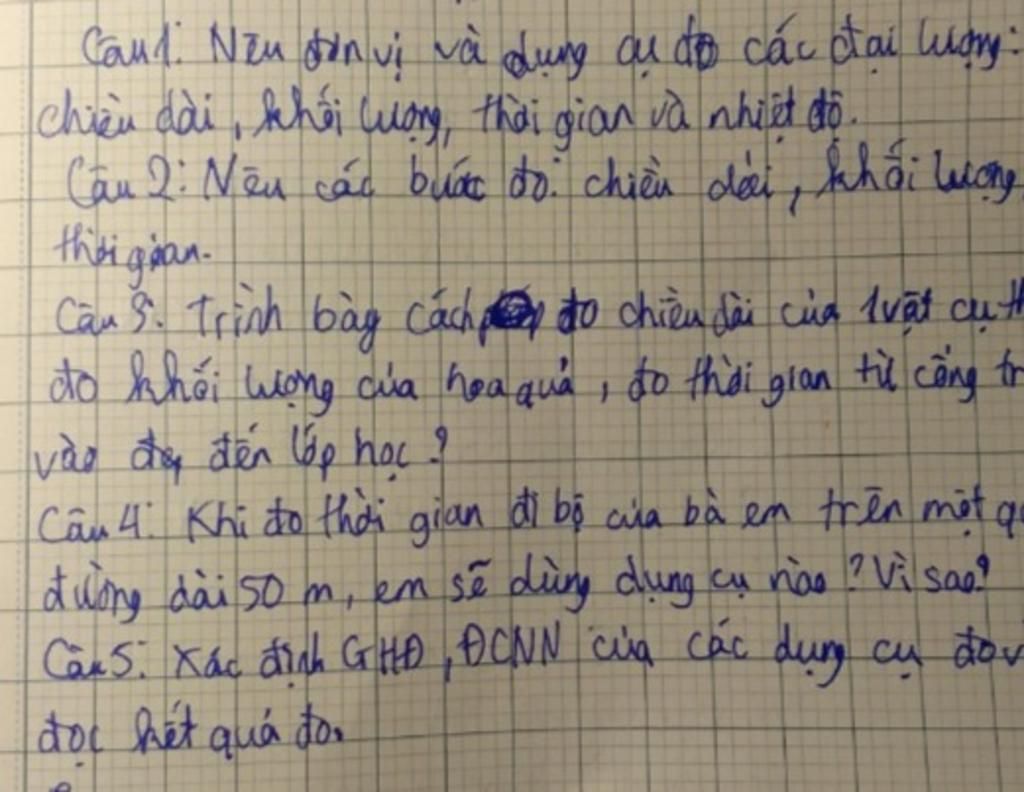 Câu 1: Nêu đơn vị và dụng cụ đo các đại lượng:
chiều dài, khối lượng, thời gian và nhiệt độ.
Câu 2: Nêu các bước đo: chiều dài, khối lượng
thời gian.
Câu 3: Trình bày cách đo chiều dài của 1 vật cụ th
đo khối lượng của hoa quả, đo thời gian từ cổng tr
vào đến lớp học?
Câu 4: Khi đo thời gian đi bộ của bà em trên một qu
đường dài 50 m, em sẽ dùng dụng cụ nào? Vì sao?
Câu 5: Xác định GHĐ, ĐCNN của các dụng cụ đo v
đọc kết quả đo.